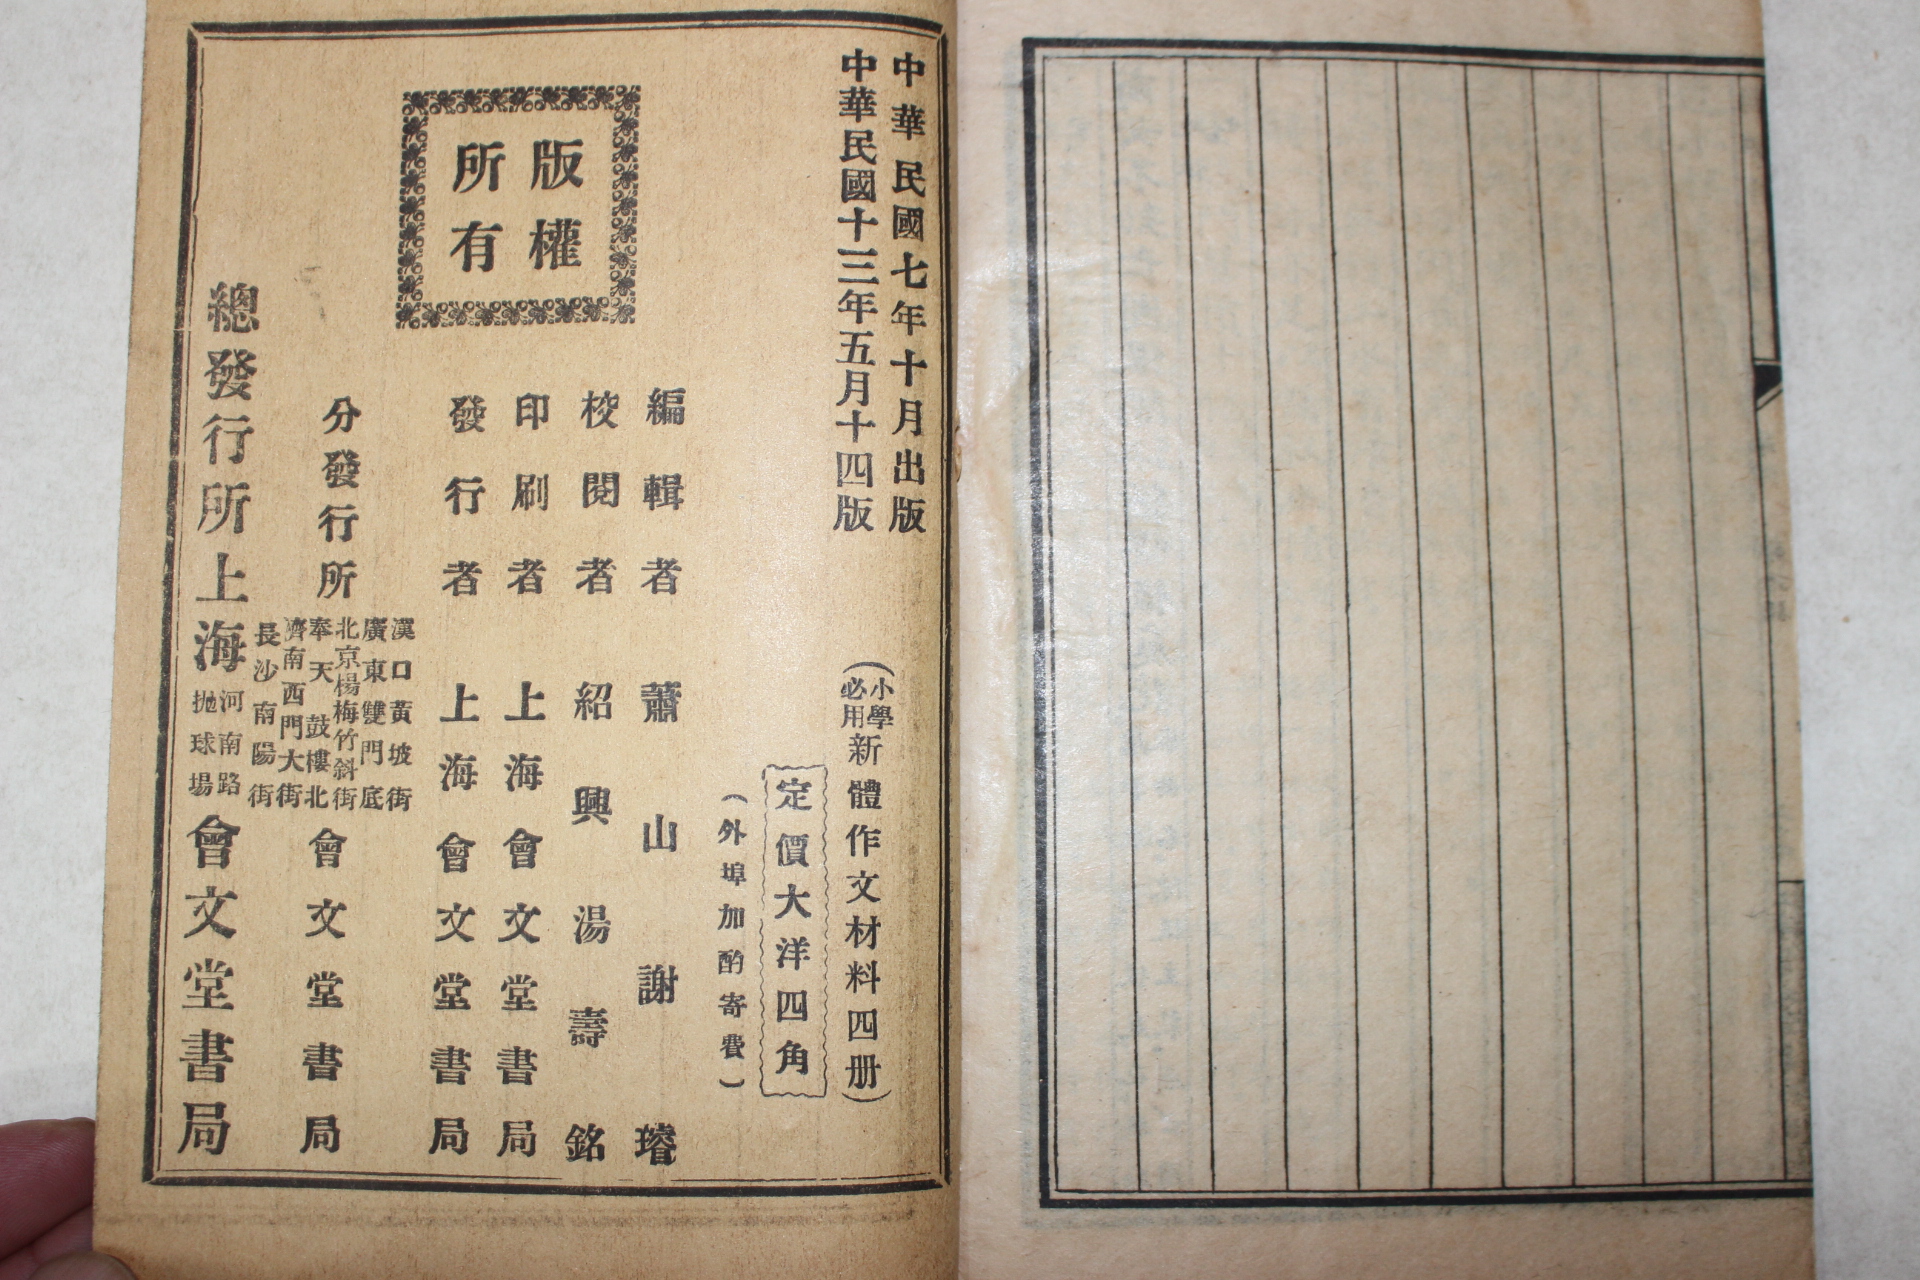 中華民國七年十月出版
中華民國十三年五月十四版
(小學必用新體作文材料四册)
定價大洋四角
(外埠加酌寄費)
版權
所有
編輯者 蕭山謝璿
校閱者 紹興湯壽銘
印刷者 上海會文堂書局
發行者 上海會文堂書局
分發行所
漢口黃坡街
廣東雙門底
北京楊梅竹斜街
奉天鼓樓北
濟南西門大街
長沙南陽街
會文堂書局
總發行所上海
河南路
拋球場
會文堂書局